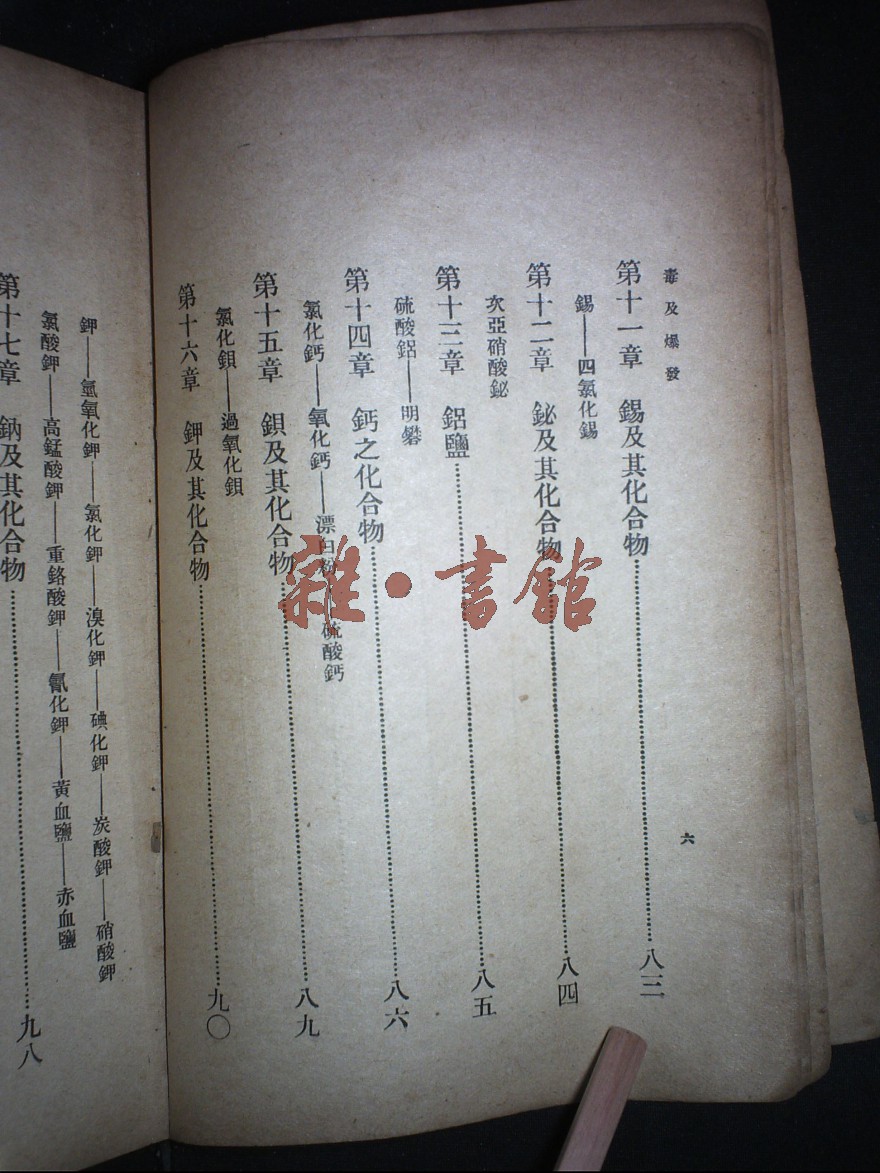 毒及爆發
六
第十一章　錫及其化合物……八三
錫——四氯化錫
第十二章　鉍及其化合物……八四
次亞硝酸鉍
第十三章　鋁鹽……八五
硫酸鋁——明礬
第十四章　鈣之化合物……八六
氯化鈣——氧化鈣——漂白粉——硫酸鈣
第十五章　鋇及其化合物……八九
氯化鋇——過氧化鋇
第十六章　鉀及其化合物……九〇
鉀——氫氧化鉀——氯化鉀——溴化鉀——碘化鉀——炭酸鉀——硝酸鉀
氯酸鉀——高錳酸鉀——重鉻酸鉀——氰化鉀——黃血鹽——赤血鹽
第十七章　鈉及其化合物……九八
雜·書館